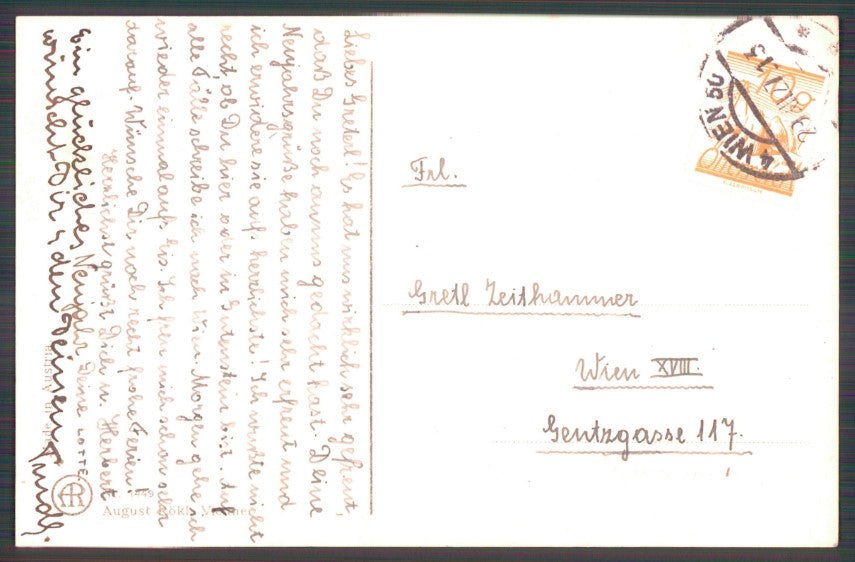 Liebes Greterl! Es hat uns wirklich sehr gefreut,
daß Du noch an uns gedacht hast. Deine
Neujahrsgrüße haben mich sehr erfreut und
ich erwidere sie aufs herzlichste! Ich wußte nicht
recht, ob Du hier oder in Gutenstein bist. Auf
alle Fälle schreibe ich nach Wien. Morgen gehe ich
wieder einmal aufs Eis. Ich freu mich schon sehr
darauf. Wünsche Dir noch recht frohe Ferien!
Herzlichst grüßt Dich u. Herbert
Deine LOTTE
Ein glückliches Neujahr
wünscht Dir u. den Deinen Trude.
Frl.
Gretl Zeithammer
Wien XVIII.
Gentzgasse 117.
4 WIEN 50
August Rökl, Vienne